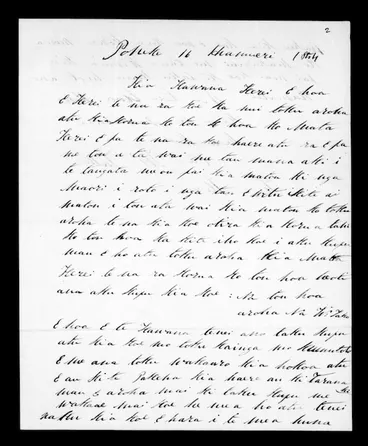 2
16 Hanueri 1854
Kia Kawana Kerei E hoa
E Kerei te na ra koe ka nui toku aroha
atu kia korua ko to hoa ko Mata
Kerei E pa te na ra koe haere atu ra E pa
me tou a ta wai me tau mana aki i
te tangata me on pai kia matou ki nga
Maori i roto i nga tau E witu kite ai
matou i tou ata wai kia matou ko toku
aroha te na kia koe otira kia korua tahi
ko tou hoa ka kite iho koe i aku kupu
man E ho atu toku aroha Kia Mata
Kerei te na ra korua ko tou hoa
ana aku kupu kia koe : Na tou hoa
aroha Na
E hoa E te Kawana tenei ano taku kupu
atu kia koe mo toku kainga mo
E me ana toku wakaaro kia hokoa atu
E au ki te Pakeha kia haere au ki Tarana
E aroha mai ki taku kupu me
wakaae mai koe he mea ho atu tenei
naku kia koe E hara i te mea huna